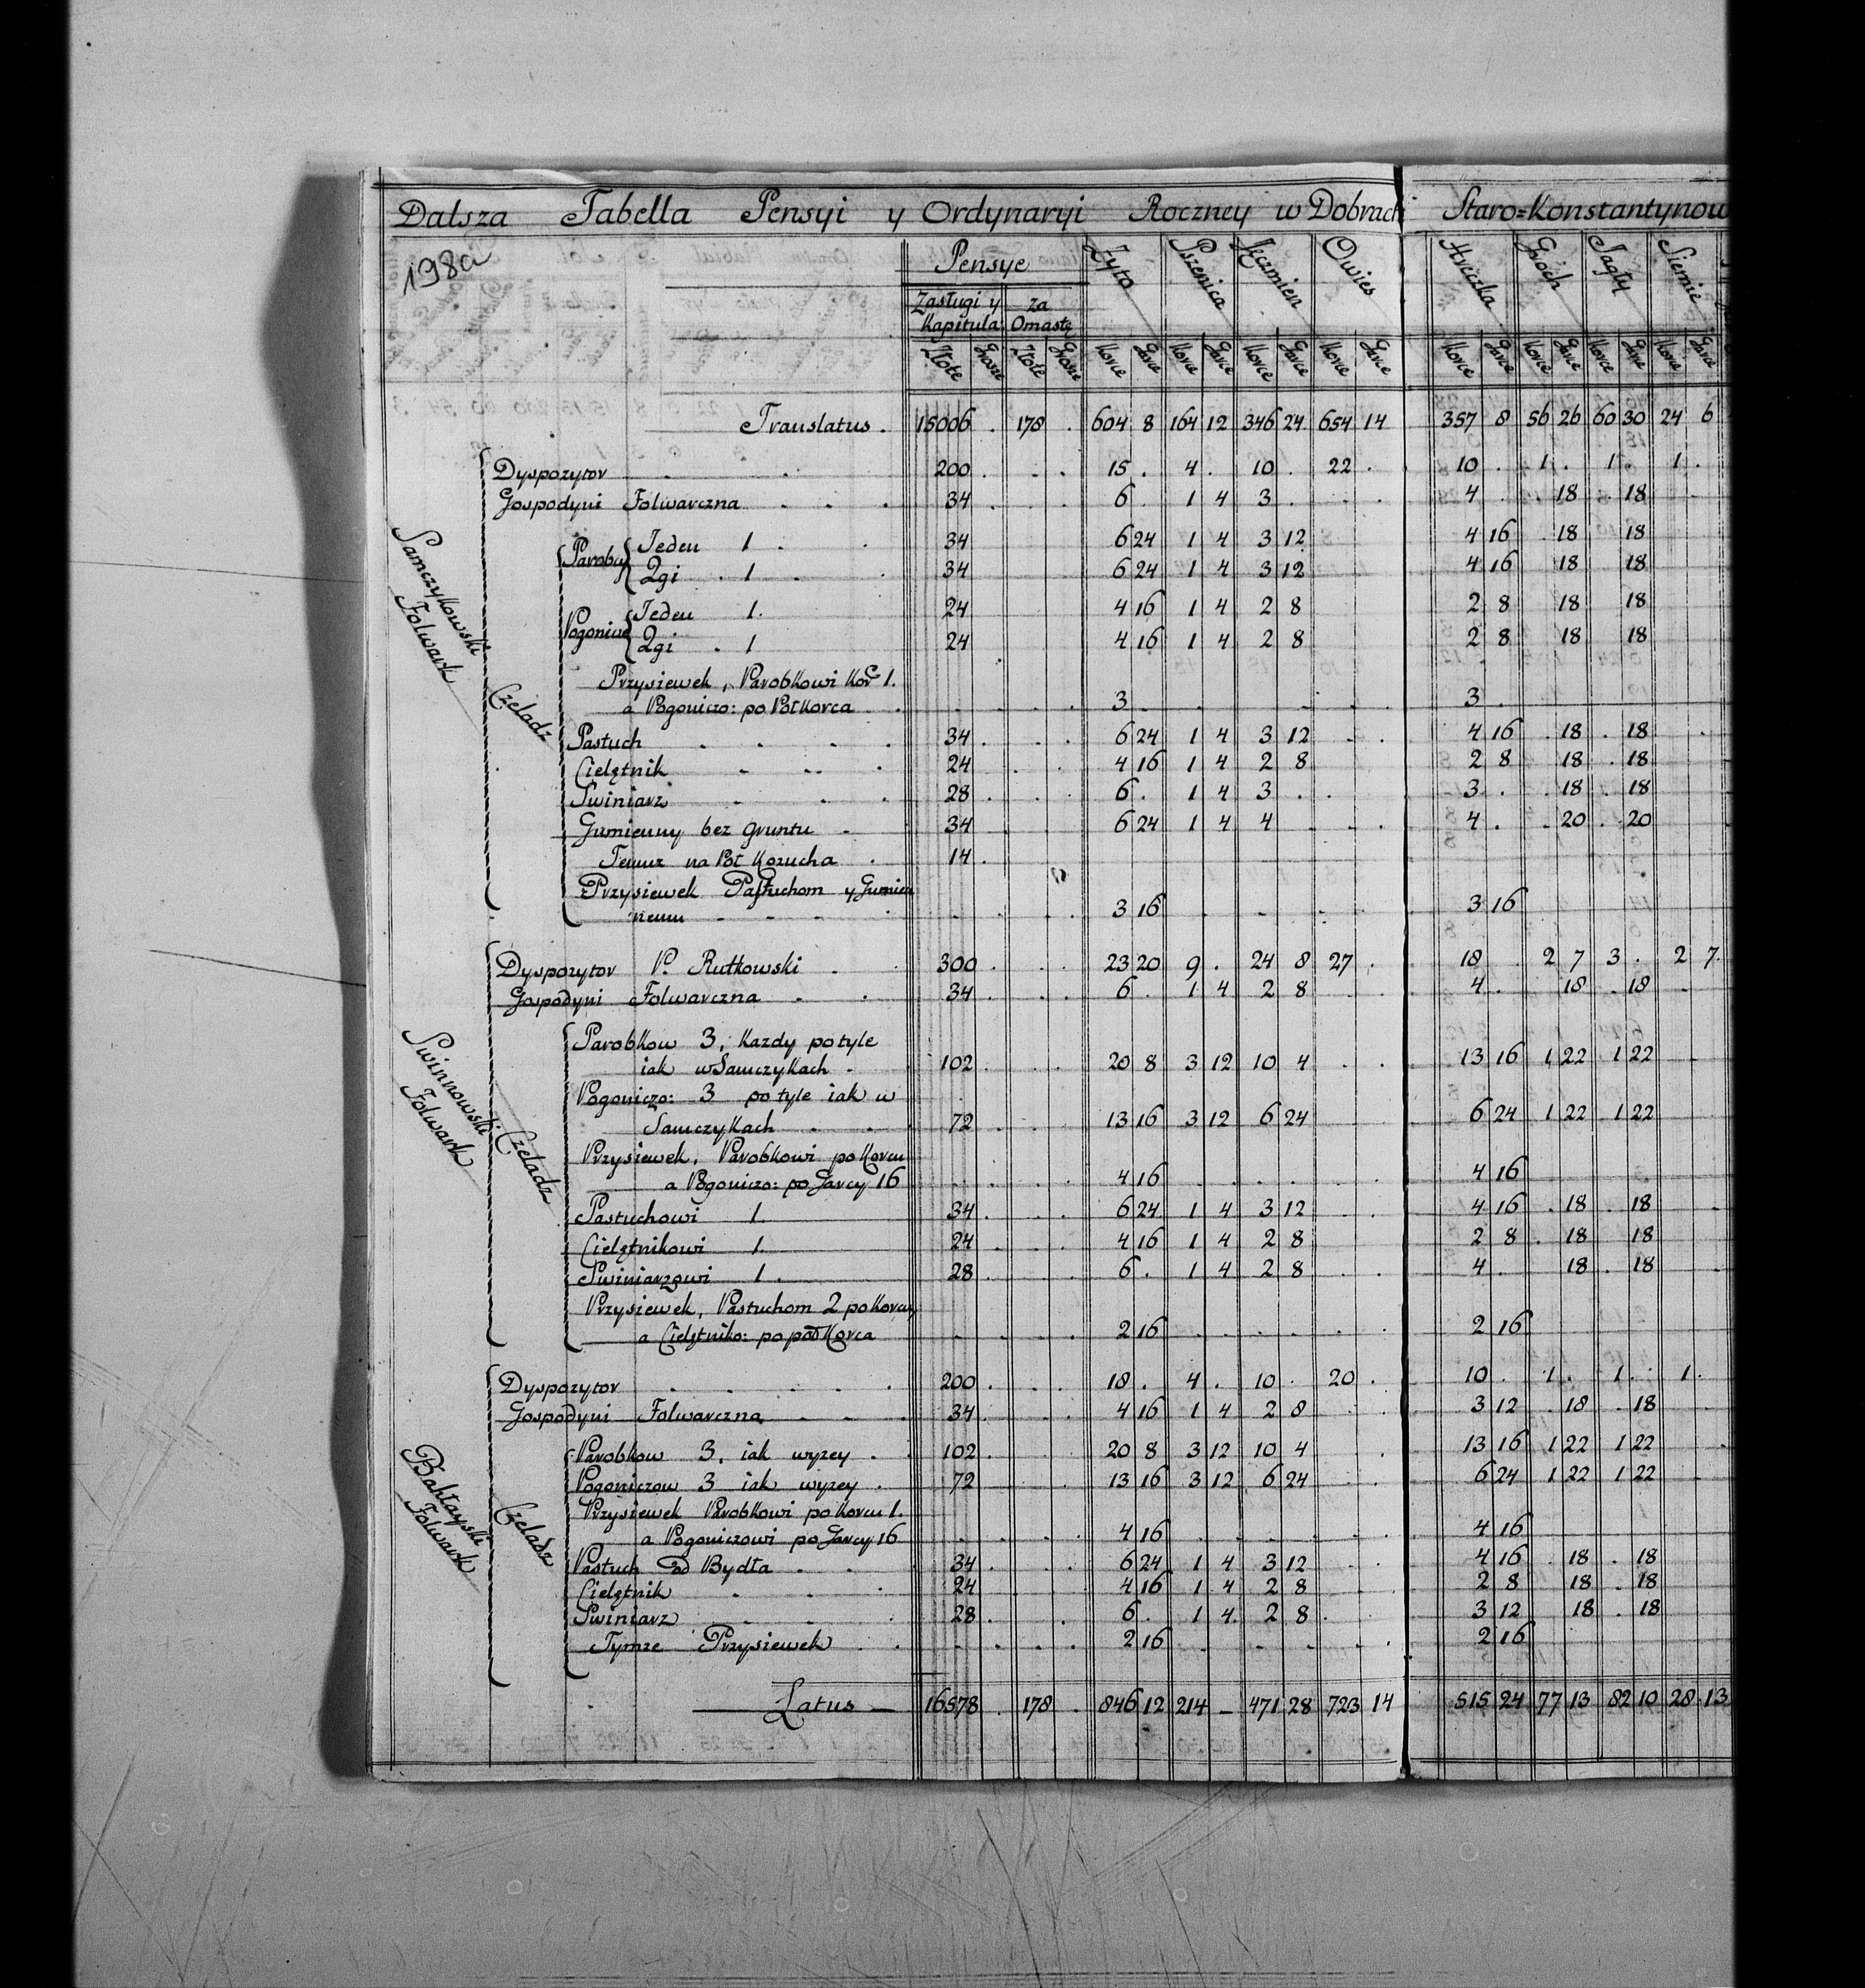 Dalsza Tabella Pensyi y Ordynaryi Roczney w Dobrach Staro=Konstantynow
198a
Pensye Zyto Pszenica Jęczmien Owies Hreczka Groch Jagły Siemie
Zasługi y za
Kapitula Omastę
Złote Grosze Złote Grosze Korce Garce Korce Garce Korce Garce Korce Garce Korce Garce Korce Garce Korce Garce Korce Garce
Translatus . 15006 . 178 . 604 8 164 12 346 24 654 14 357 8 56 26 60 30 24 6
Samczykowski Folwark
Dyspozytor 200 . 15 . 4 . 10 . 22 . 10 . 1 . 1 . 1 .
Gospodyni Folwarczna 34 6 . 1 4 3 . 4 . 18 . 18
Czeladz
Parobcy Jeden 1 34 6 24 1 4 3 12 4 16 18 18
2gi . 1 34 6 24 1 4 3 12 4 16 18 18
Pogonicz Jeden 1. 24 4 16 1 4 2 8 2 8 18 18
2gi . 1 24 4 16 1 4 2 8 2 8 18 18
Przysiewek, Parobkowi Kor 1.
a Pogonicz: po Półkorca 3 3 .
Pastuch 34 . 6 24 1 4 3 12 4 16 . 18 . 18
Cielętnik 24 4 16 1 4 2 8 2 8 18 . 18
Swiniarz 28 . 6 . 1 4 3 . 3 . 18 . 18
Gumienny bez gruntu 34 6 24 1 4 4 4 . 20 . 20
Temuz na Pół Kozucha . 14 .
Przysiewek Pastuchom y Gumien
nemu 3 16 3 16
Swinnowski Folwark
Dyspozytor P. Rutkowski 300 . 23 20 9 . 24 8 27 . 18 . 2 7 3 . 2 7
Gospodyni Folwarczna 34 . 6 . 1 4 2 8 4 . 18 . 18
Czeladz
Parobkow 3, Kazdy po tyle
iak w Samczykach 102 . 20 8 3 12 10 4 13 16 1 22 1 22
Pogonicz: 3 po tyle iak w
Samczykach 72 . 13 16 3 12 6 24 6 24 1 22 1 22
Przysiewek, Parobkowi po Korcu
a Pogonicz: po Garcy 16 4 16 4 16
Pastuchowi 1. 34 . 6 24 1 4 3 12 4 16 . 18 . 18
Cielętnikowi 1. 24 . 4 16 1 4 2 8 2 8 . 18 18
Swiniarzowi 1. 28 . 6 . 1 4 2 8 4 . 18 . 18
Przysiewek, Pastuchom 2 po Korcu,
a Cielętniko: po poł Korca 2 16 2 16
Bahłayski Folwark
Dyspozytor 200 . 18 . 4 . 10 . 20 . 10 . 1 . 1 . 1 .
Gospodyni Folwarczna 34 . 4 16 1 4 2 8 3 12 . 18 . 18
Czeladz
Parobkow 3, iak wyzey . 102 . 20 8 3 12 10 4 13 16 1 22 1 22
Pogoniczow 3 iak wyzey . 72 13 16 3 12 6 24 6 24 1 22 1 22
Przysiewek Parobkowi po Korcu 1.
a Pogoniczowi po Garcy 16 4 16 4 16
Pastuch od Bydła 34 . 6 24 1 4 3 12 4 16 . 18 . 18
Cielętnik 24 4 16 1 4 2 8 2 8 18 . 18
Swiniarz 28 . 6 . 1 4 2 8 . 3 12 18 . 18
Tymze Przysiewek 2 16 2 16
Latus — 16578 . 178 . 846 12 214 — 471 28 723 14 515 24 77 13 82 10 28 13